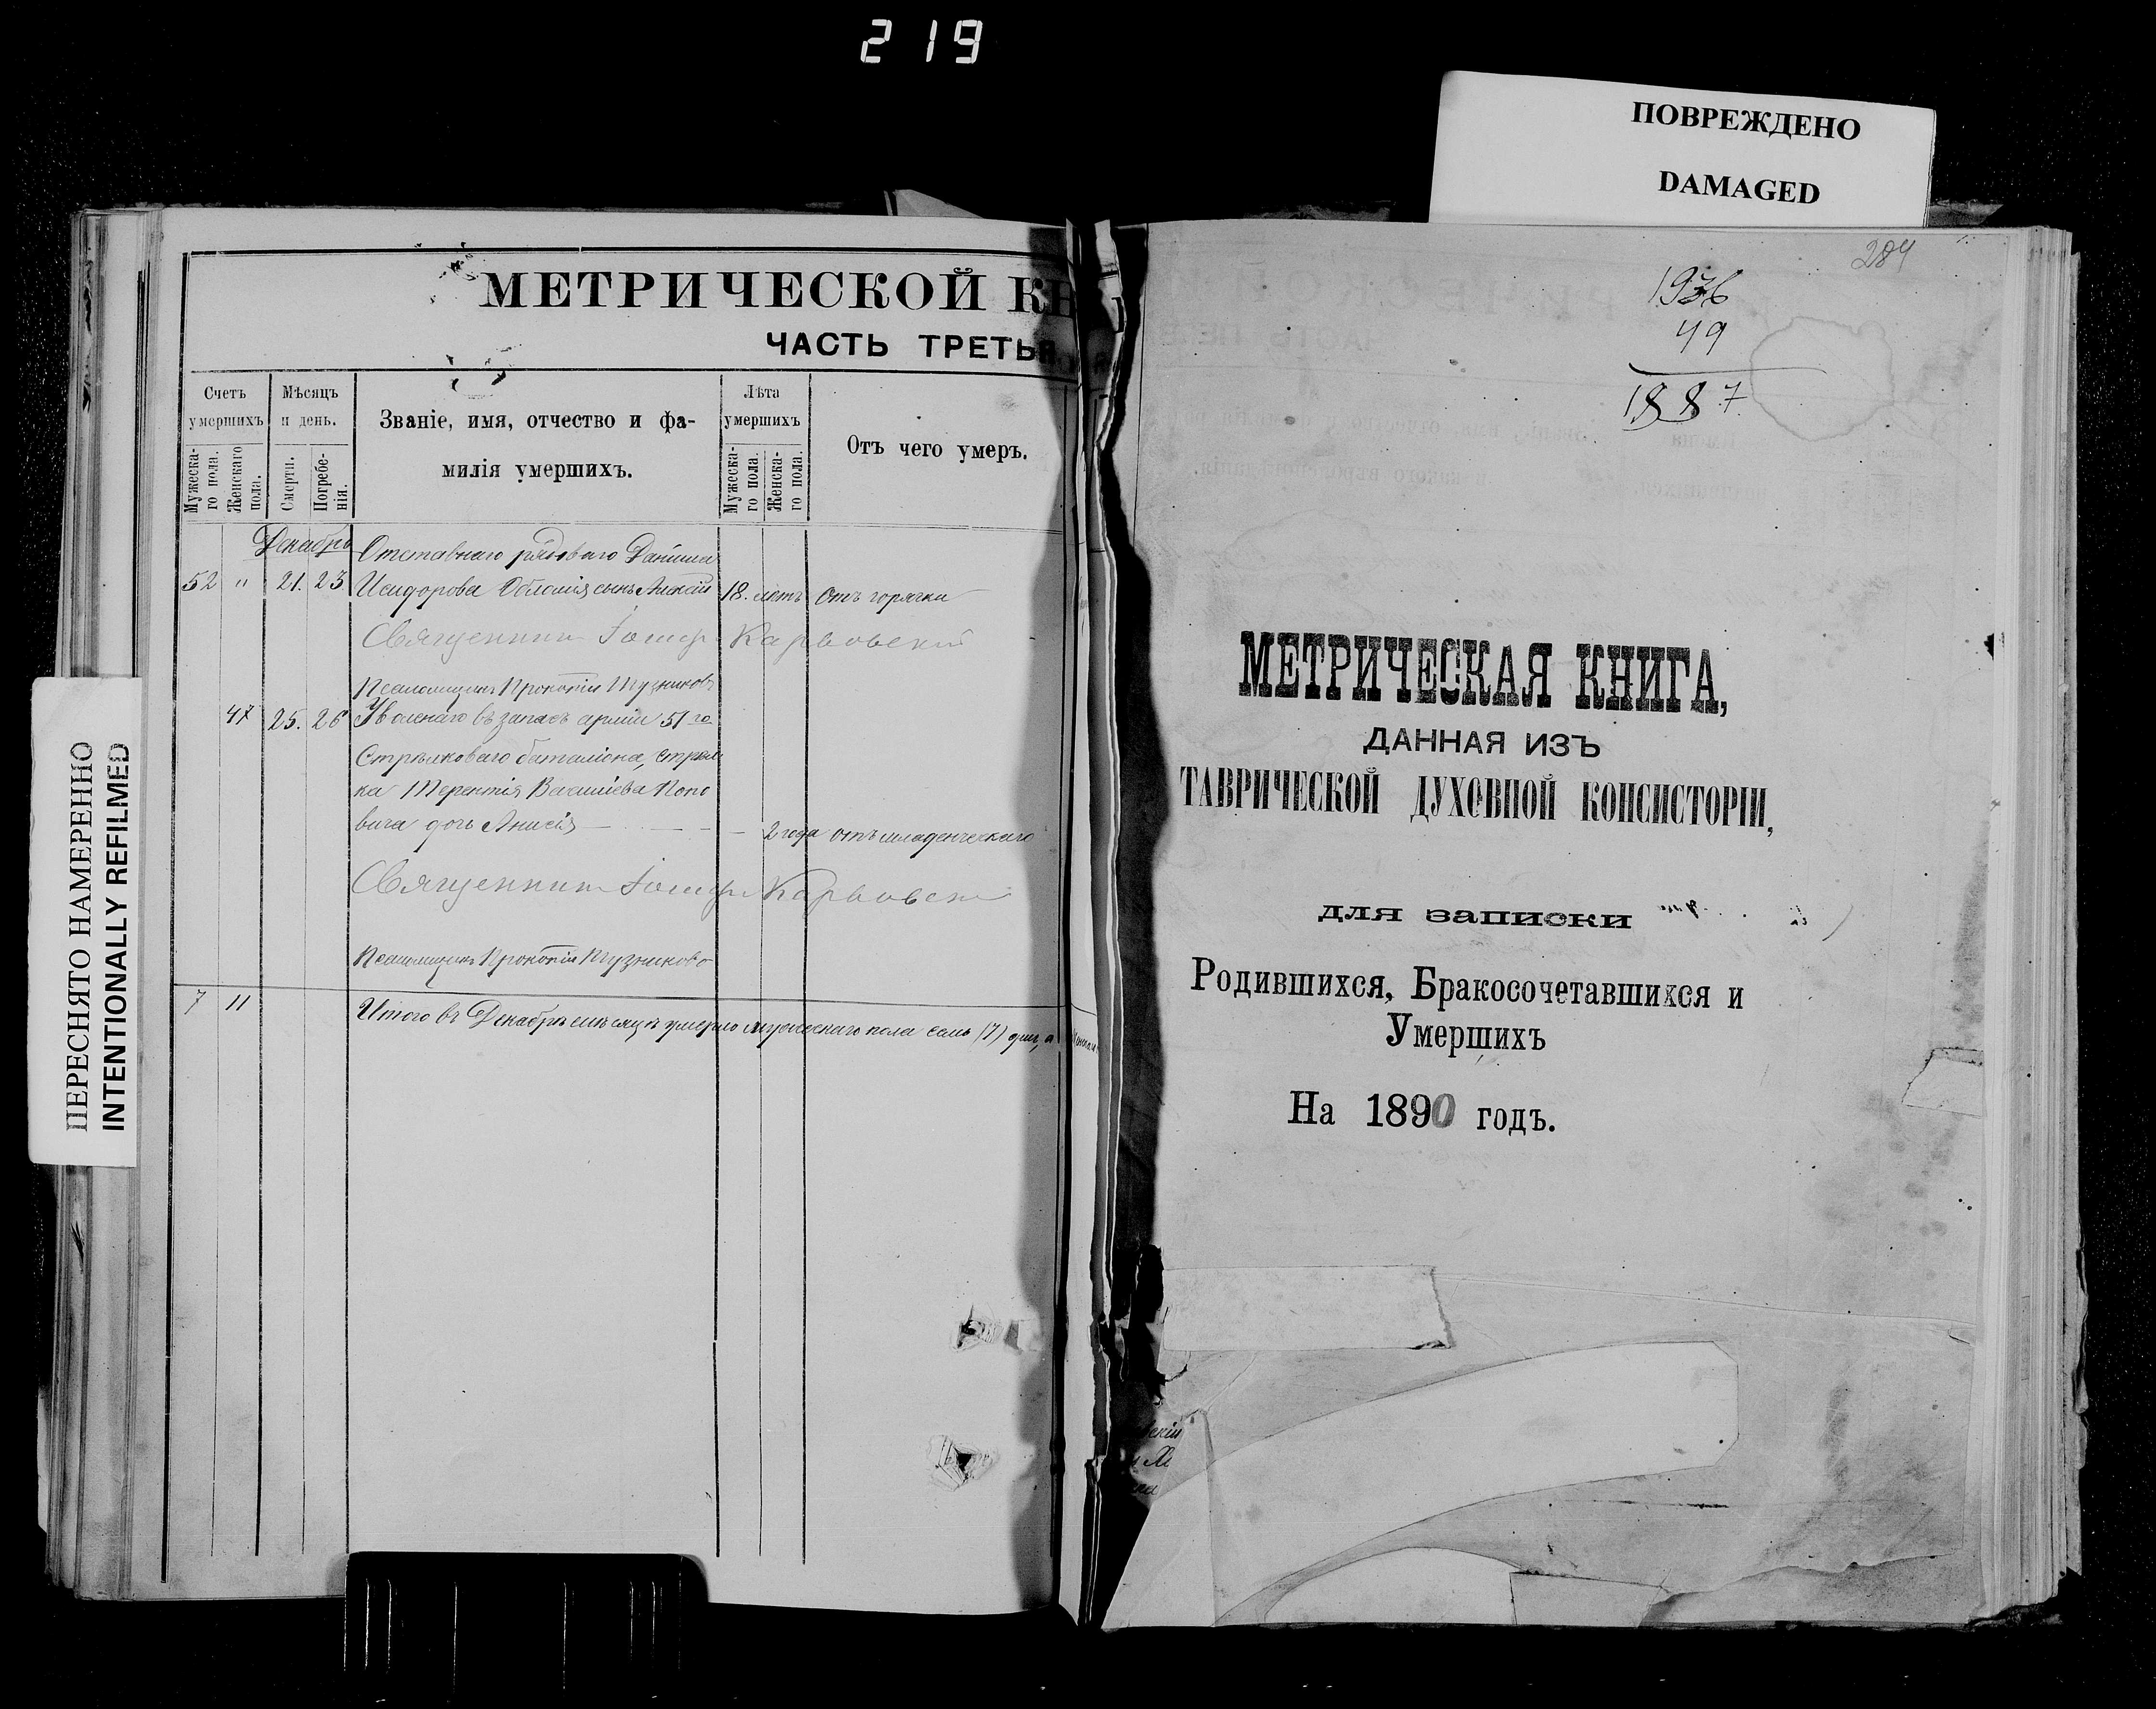 219
ПОВРЕЖДЕНО
DAMAGED
ПЕРЕСНЯТО НАМЕРЕННО
INTENTIONALLY REFILMED
МЕТРИЧЕСКОЙ КН
ЧАСТЬ ТРЕТЬЯ
Счетъ умершихъ
Мужеска-го пола.
Женскаго пола.
Мѣсяцъ и день.
Смерти.
Погребе-нія.
Званіе, имя, отчество и фа-
милія умершихъ.
Лѣта умершихъ
Мужеска-го пола.
Женска-го пола.
Отъ чего умеръ.
Декабрь
Отставнаго рядоваго Даніила
52 " 21. 23 Исидорова сынъ Алексій 18. летъ Отъ горячки
Священник Іосиф Карвовский
Псаломщикъ Прокопій
47 25. 26 Уволенаго въ запасъ арміи 51го
Стрѣлковаго баталіона, стрѣл
ка Терентія Василіева Попо
вича дочь Анисія 2 года отъ младенческаго
Священник Іосиф Карвовск
Псаломщикъ Прокопій
7 11 Итого въ Декабрѣ месяцѣ умерло мужескаго пола семь (7) душ, а
284
1936
49
1887
МЕТРИЧЕСКАЯ КНИГА,
ДАННАЯ ИЗЪ
ТАВРИЧЕСКОЙ ДУХОВНОЙ КОНСИСТОРІИ,
для записки
Родившихся, Бракосочетавшихся и
Умершихъ
На 1890 годъ.